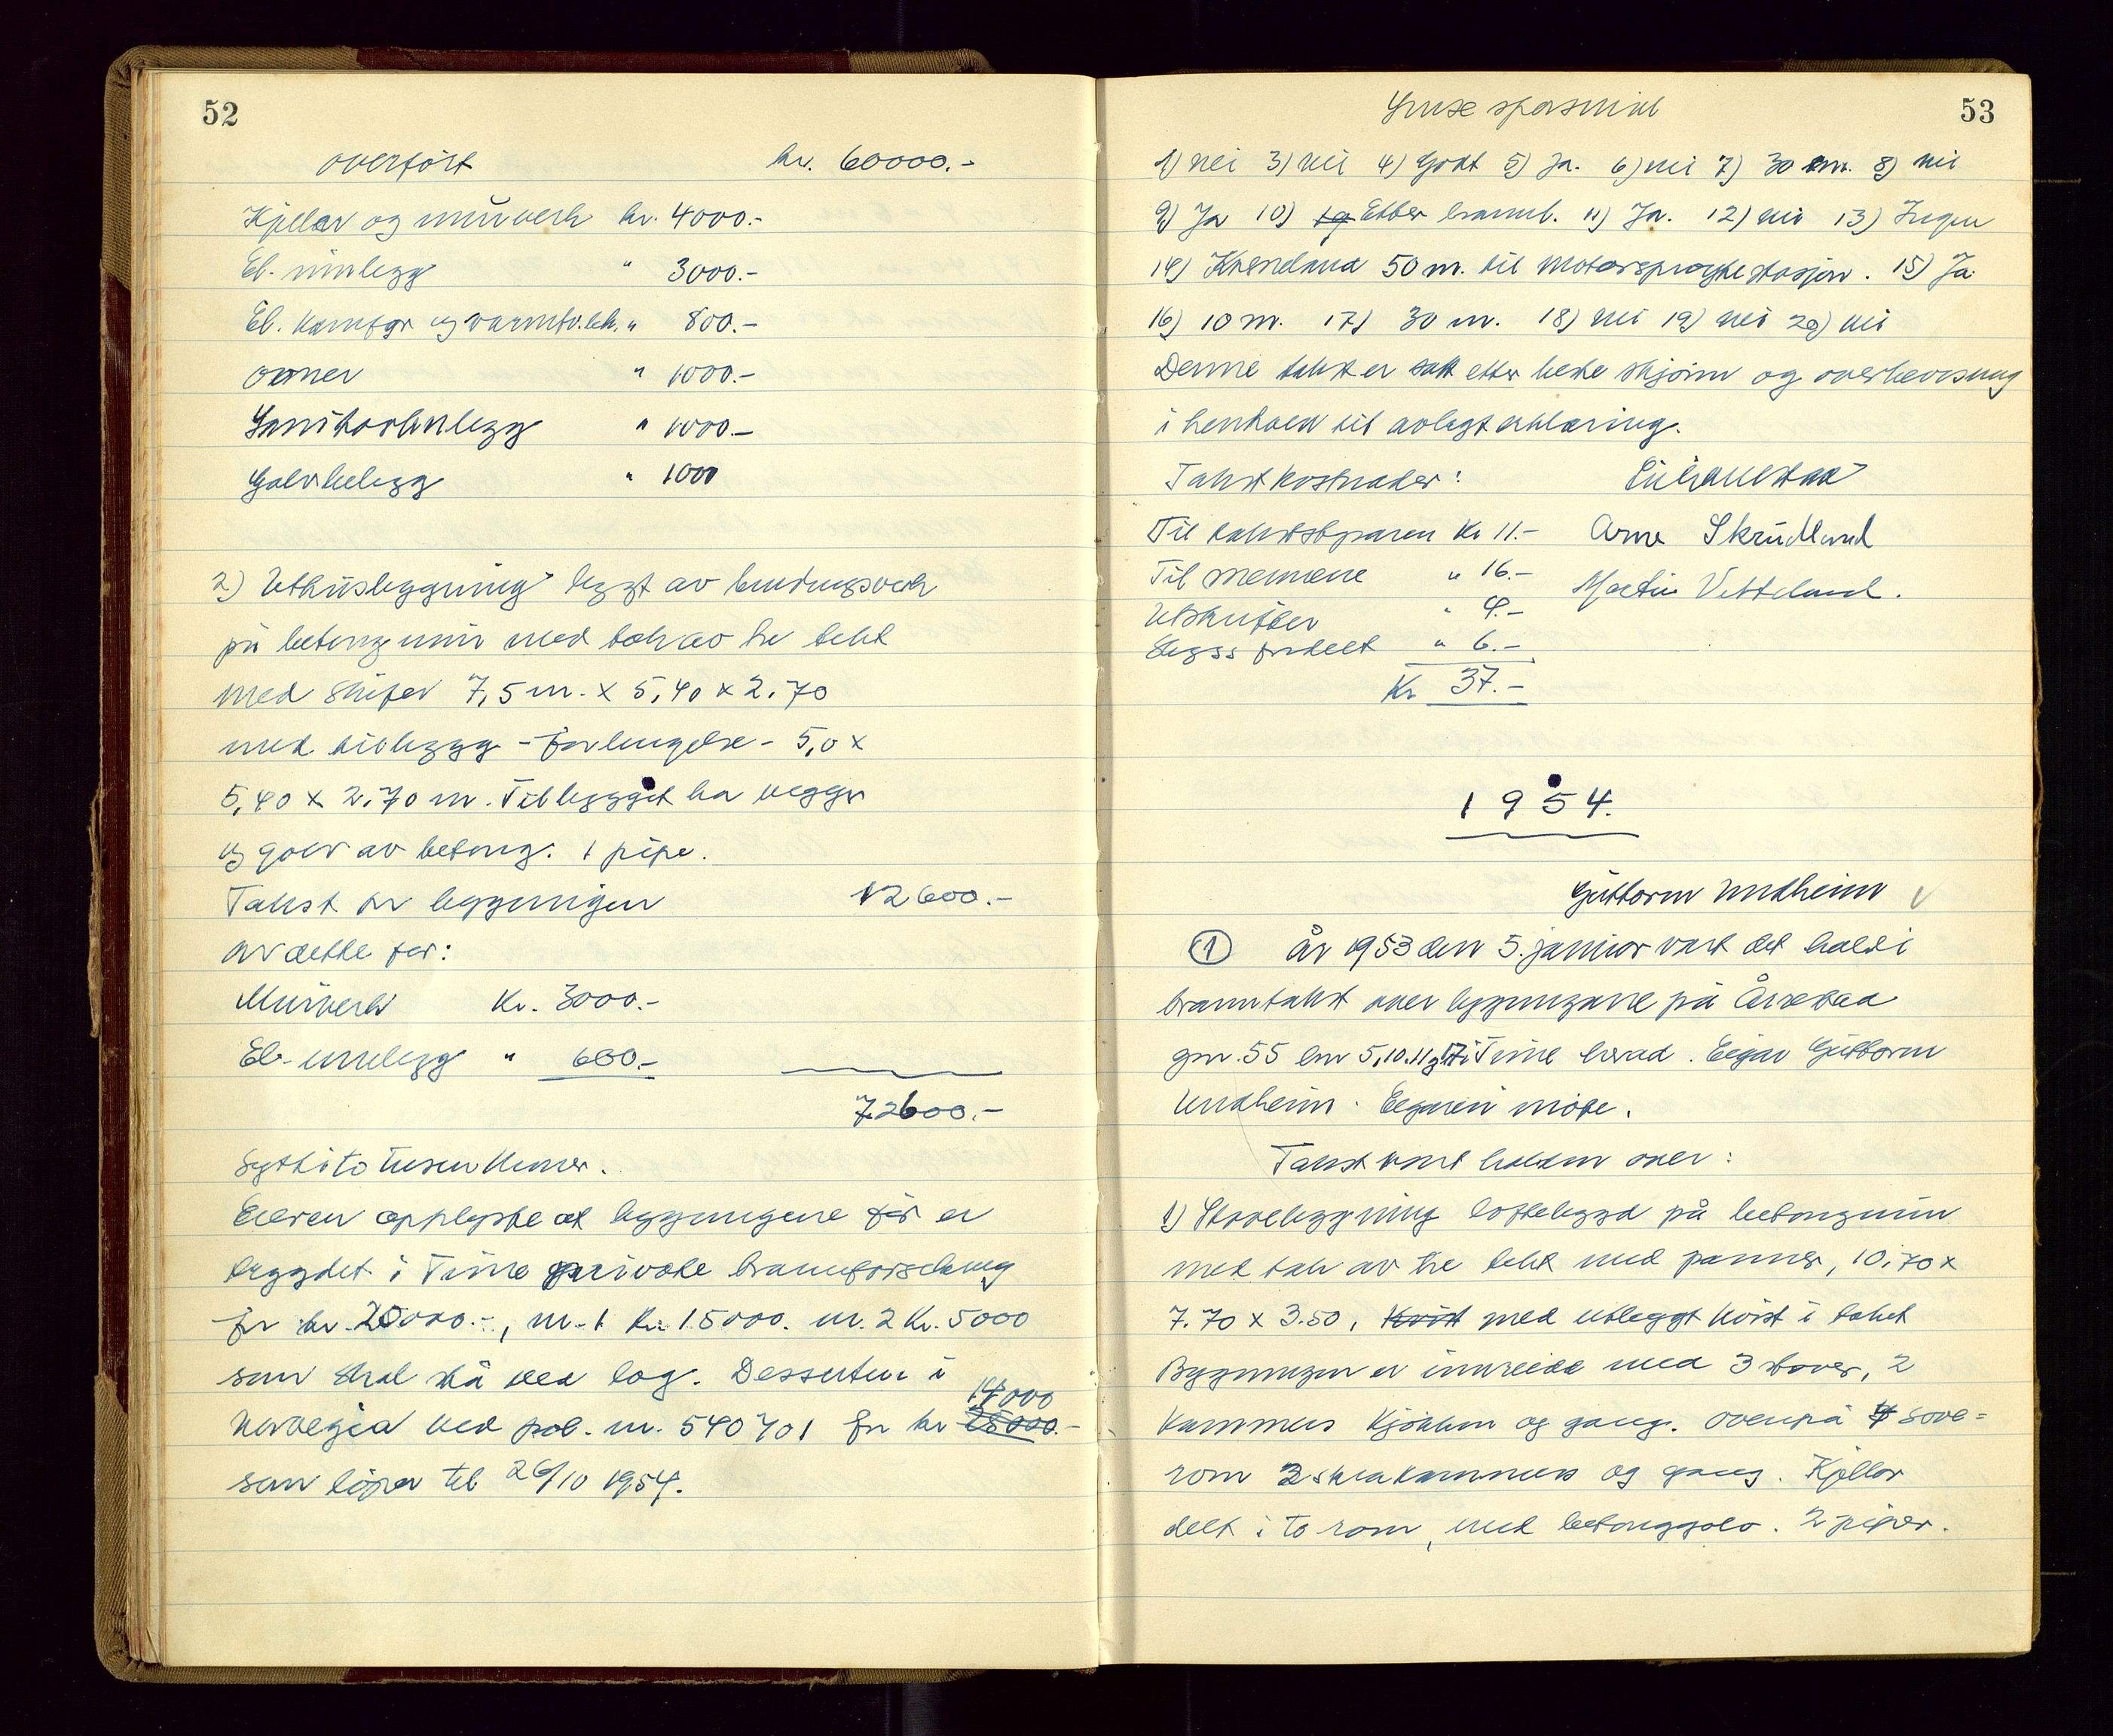 52
overført kr. 60000.-
Kjellar og murverk kr. 4000.-
El. innlegg " 3000.-
El. komfyr og varmtv.ber. " 800.-
ovner " 1000.-
Sanitæranlegg " 1000.-
Golvbelegg " 1000
2) Uthusbyggning bygt av bindingsverk
på betongmur med tak av tre tekt
med skifer 7,5 m. x 5,40 x 2.70
med tilbygg - forlengelse - 5,0 x
5,40 x 2.70 m. Tilbygget har vegger
og golv av betong. 1 pipe.
Takst for bygningen 12600.-
Av dette for:
Murverk Kr. 3000.-
El- innlegg " 600.-
72600.-
Sytti to tusen
Eieren opplyste at bygningene før er
trygdet i Time private brannforsikring
for kr. 20000.-, nr. 1 kr. 15000. nr. 2 kr. 5000
som skal stå ved lag. Dessuten i
14000
Norvegia ved pol. nr. 540701 for kr 28000.-
som løper til 26/10 1954.
53
Lause spørsmål
1) nei 3) nei 4) Godt 5) Ja. 6) nei 7) 30 m. 8) nei
9) Ja 10) Etter brannl. 11) Ja. 12) nei 13) Ingen
14) Kverneland 50 m. til Motorsprøytestasjon. 15) Ja
16) 10 m. 17) 30 m. 18) nei 19) nei 20) nei
Denne takst er satt etter beste skjønn og overbevisning
i henhold til avlagt erklæring.
Takstkostnader:
Til takstbestyraren Kr 11.- Arne Skrudland
Til mennene " 16.- Martin Vetteland.
Utskrifter " 4.-
Skyss fordelt " 6.-
Kr 37.-
1954.
Guttorm Undheim
1 År 1953 den 5. januar vart det haldi
branntakst over bygningane på Årrestad
gnr. 55 bnr 5, 10, 11 og 17 i Time herad. Eigar Guttorm
Undheim. Eigaren møtte.
Takst vart halden over:
1) Stovebygning loftsbygd på betongmur
med tak av tre tekt med panner, 10.70 x
7.70 x 3.50, Kvist med utbygt kvist i taket
Bygningen er innreidd med 3 stover, 2
kammers kjøkken og gang. Ovenpå 4 sove=
rom 2 skråkammers og gang. Kjellar
delt i to rom, med betonggolv. 2 piper.